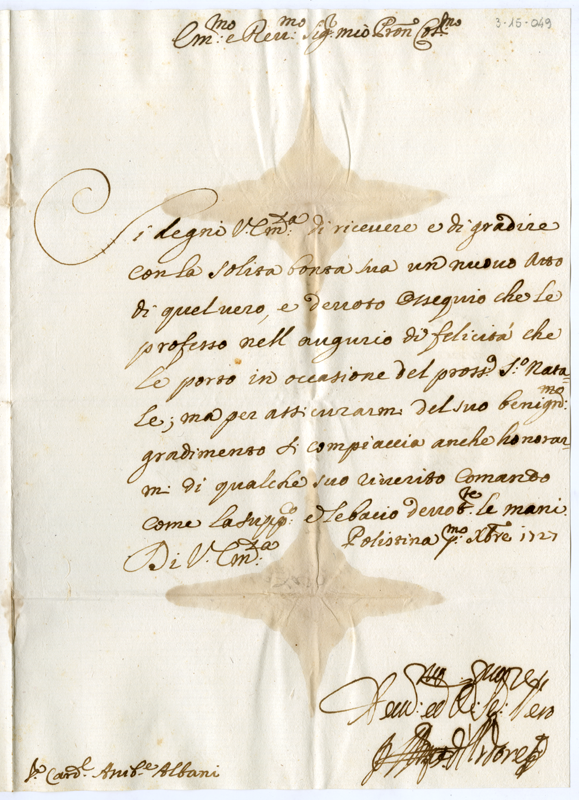 3-15-049
Em:mo e Rev:mo Sig:r mio Pron Col:mo
Si degni V: Em:za di ricevere e di gradire
con la solita bontà sua un nuovo Atto
di quel vero, e devoto Ossequio che le
professo nell augurio di felicità che
le porto in occasione del pross:o S:o Nata=
le; ma per assicurarmi del suo benign:mo
gradimento si compiaccia anche honorar=
mi di qualche suo riverito comando
come la supp:o e le bacio devot:te le mani.
Di V: Em:za Polistina p:mo Xbre 1727
S:r Card:l Anib:e Albani